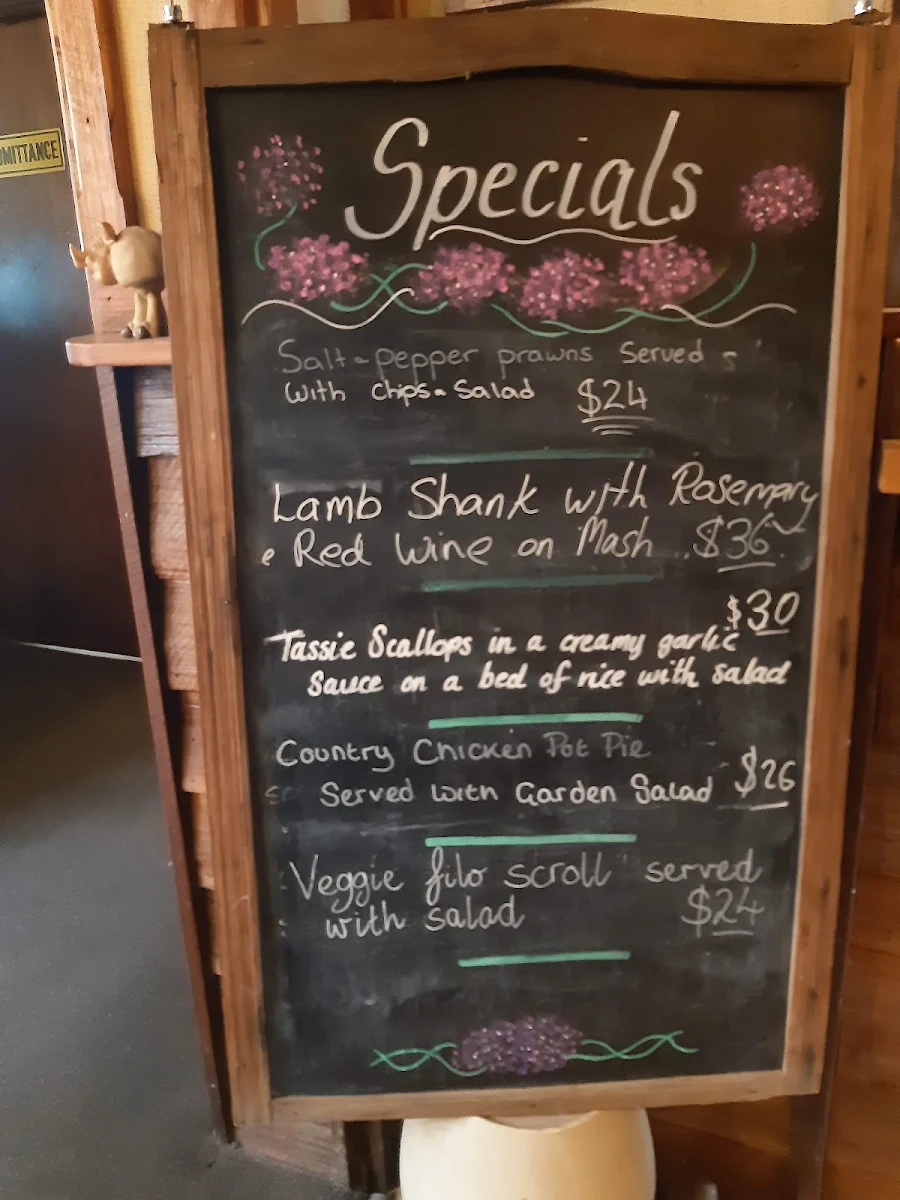 OMITTANCE
Specials
Salt & pepper prawns Served
with chips & Salad $24
Lamb Shank with Rosemary
& Red Wine on Mash $36
$30
Tassie Scallops in a creamy garlic
Sauce on a bed of rice with salad
Country Chicken Pot Pie
Served with Garden Salad $26
Veggie filo scroll served
with salad $24